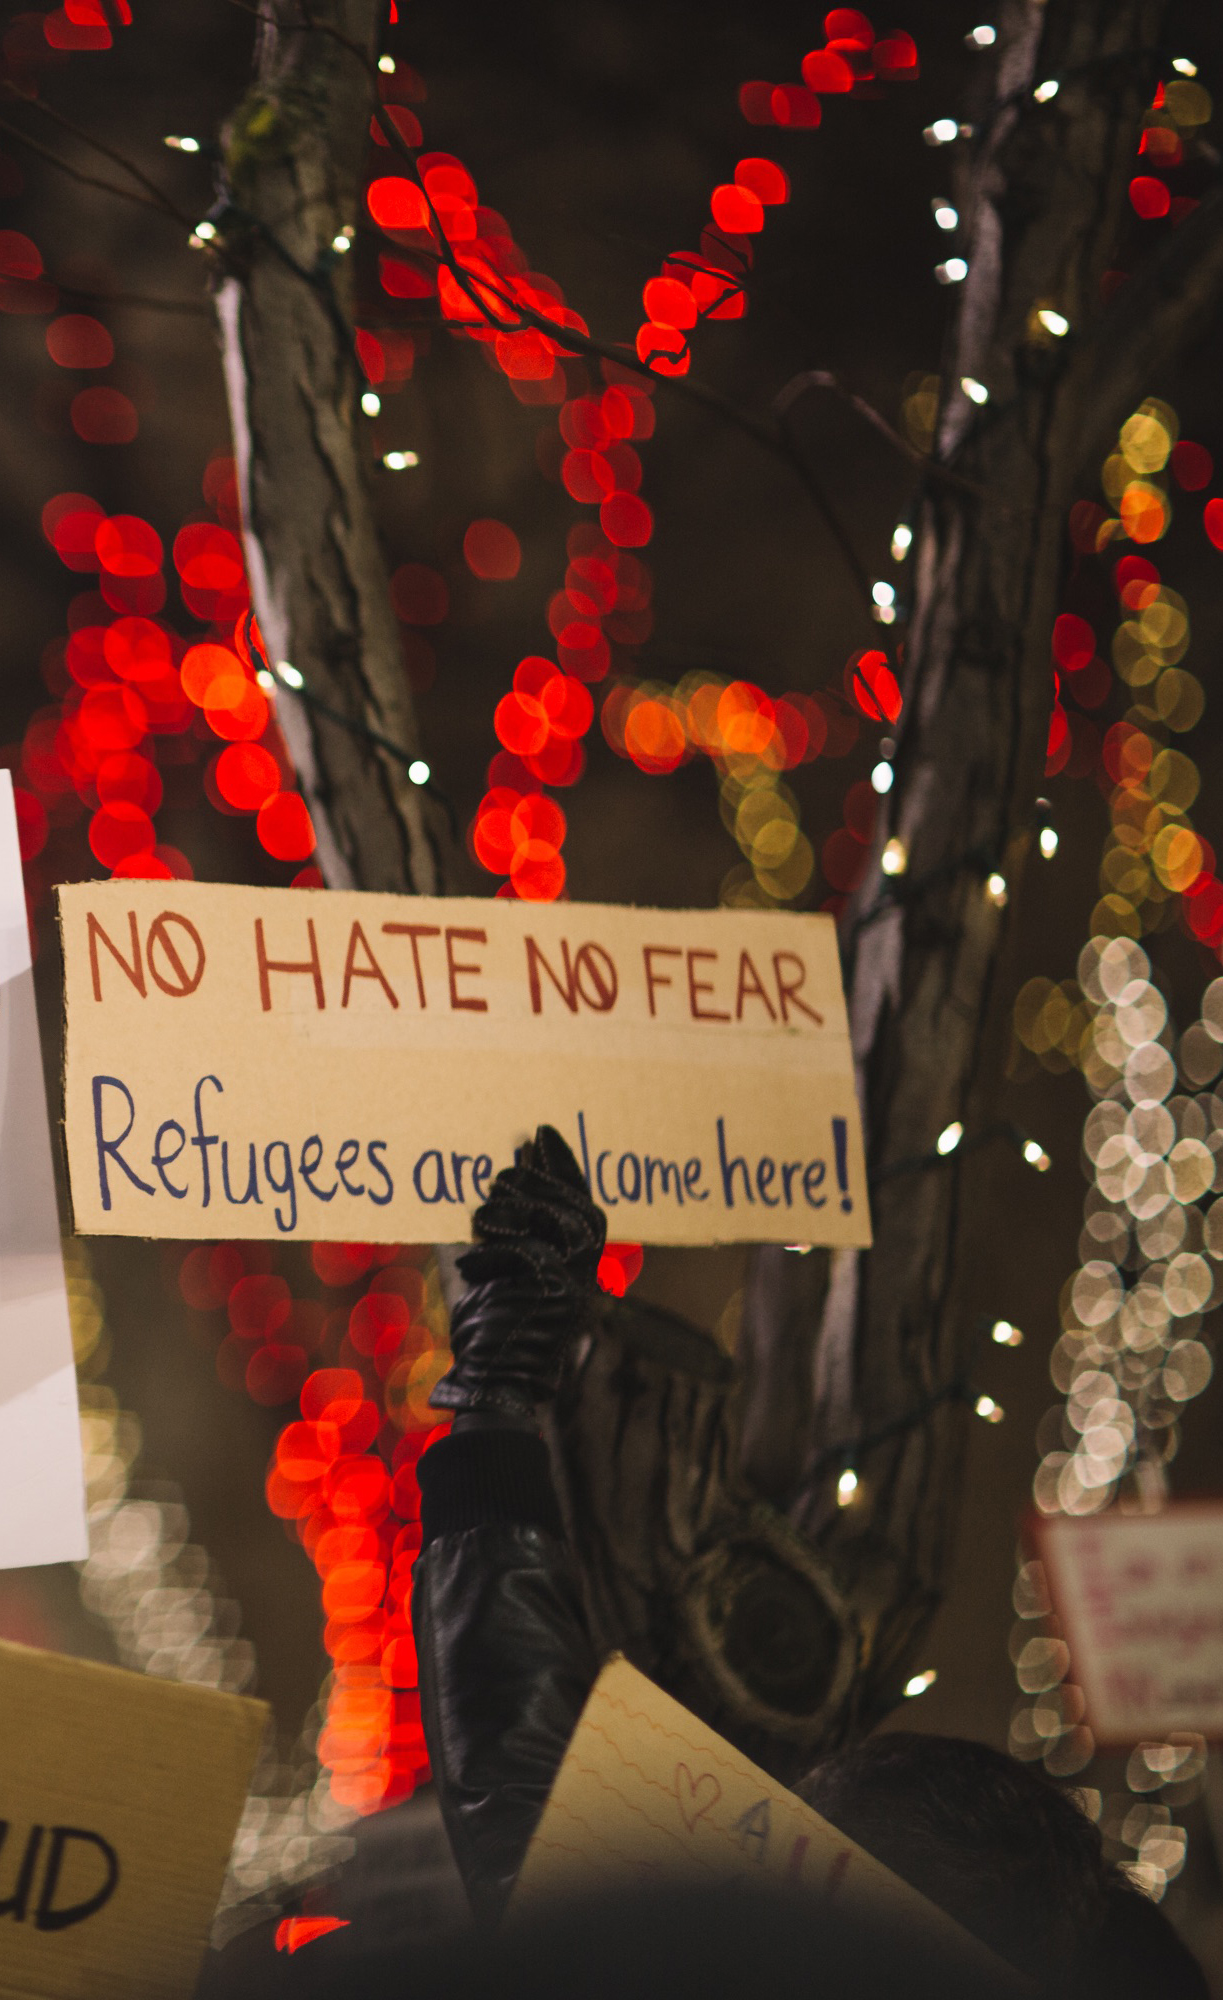 NO HATE NO FEAR
Refugees are welcome here!
UD
A